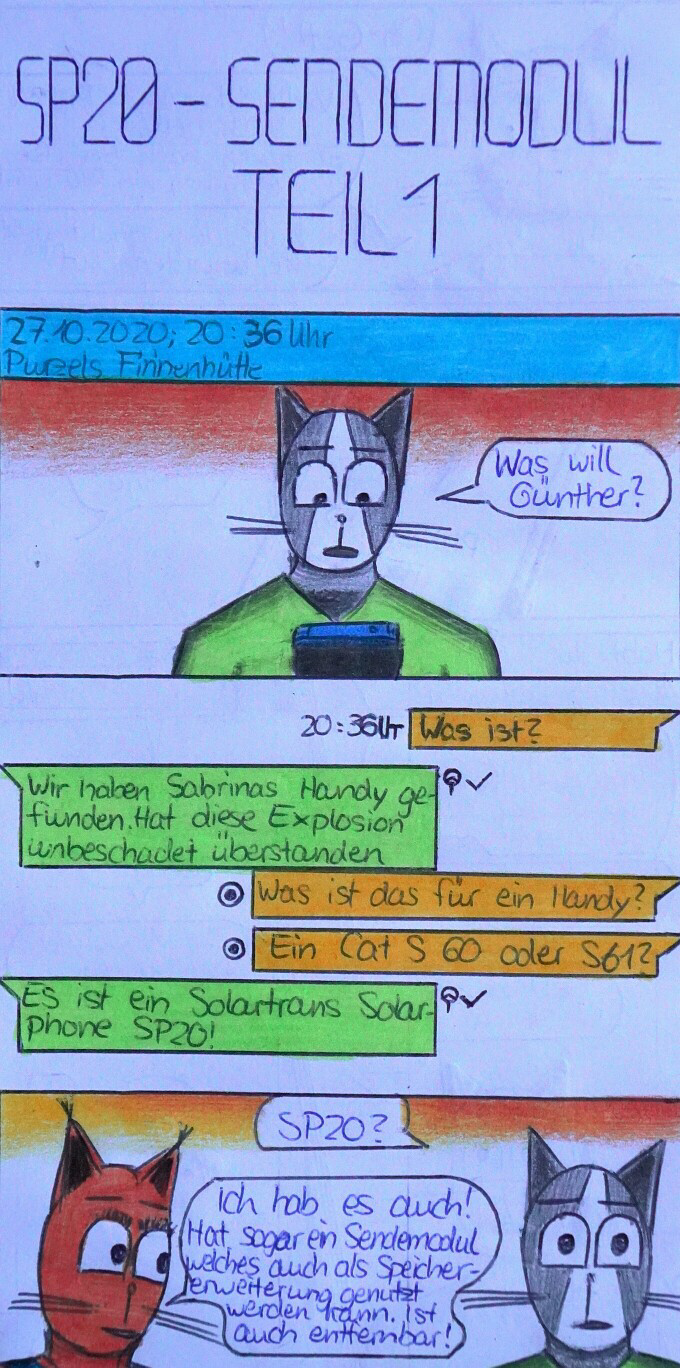 SP20 - SENDEMODUL
TEIL 1
27.10.2020; 20:36 Uhr
Purzels Finnenhütte
Was will
Günther?
20:36Ur Was ist?
Wir haben Sabrinas Handy ge-
funden. Hat diese Explosion
unbeschadet überstanden
Was ist das für ein Handy?
Ein Cat S 60 oder S61?
Es ist ein Solartrans Solar-
phone SP20!
SP20?
Ich hab es auch!
Hat sogar ein Sendemodul
welches auch als Speicher-
erweiterung genutzt
werden kann. Ist
auch entfernbar!